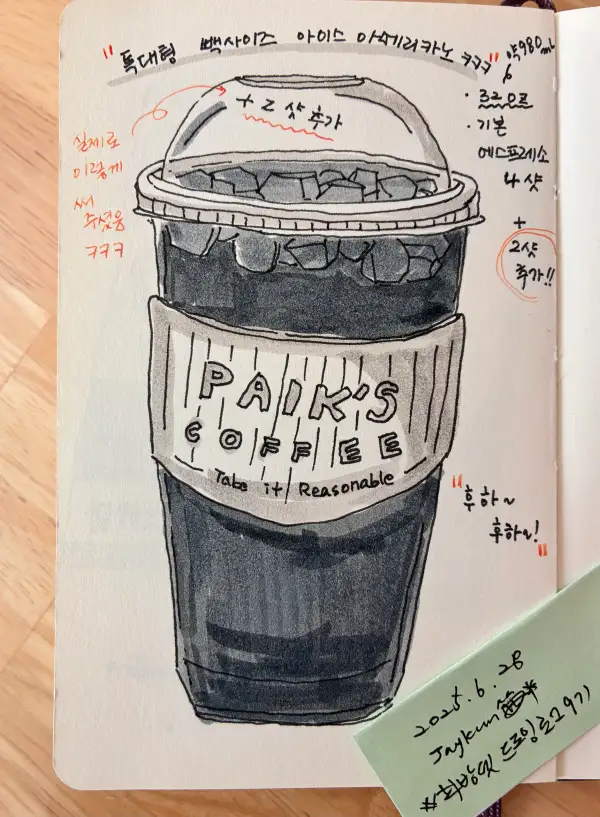 "특대형 빽사이즈 아이스 아메리카노 ㅋㅋㅋ"
약980mL
+ 2 샷 추가
실제로
이렇게
써
주셨음
ㅋㅋㅋ
· 기본
에스프레소
4 샷
+
2샷
추가!!
PAIK'S
COFFEE
Take it Reasonable
"후하~
후하~!"
2025.6.28
Jaykun
드로잉로그 9기